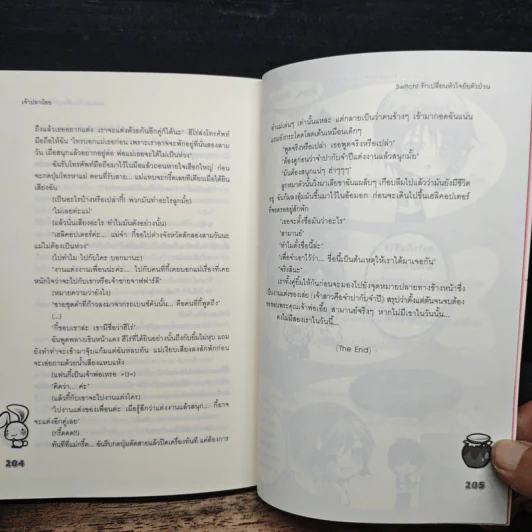 เจ้าปลาน้อย
ถึงแล้วเธออยากแต่ง เราจะแต่งด้วยกันอีกคู่ก็ได้นะ" ฮีโร่ส่งโทรศัพท์
มือถือให้ฉัน "โทรบอกแม่เธอก่อน เพราะเราอาจจะพักอยู่ที่นั่นสองสาม
วัน เมื่อสนุกแล้วอยากอยู่ต่อ พ่อแม่เธอจะได้ไม่เป็นห่วง"
ฉันรับโทรศัพท์มือถือมาไว้ในมือแล้วถอนหายใจเฮือกใหญ่ ก่อน
จะกดปุ่มโทรหาแม่ ตอนที่รับสาย... แม่แทบจะกรี๊ดเลยทีเดียวเมื่อได้ยิน
เสียงฉัน
(เป็นอะไรบ้างหรือเปล่ากี้ พวกมันทำอะไรลูกมั้ย)
"ไม่เลยค่ะแม่"
(แล้วนั่นเสียงอะไร ทำไมมันดังอย่างนั้น)
"เฮลิคอปเตอร์ค่ะ... แม่จ๋า กี้ขอไปต่างจังหวัดสักสองสามวันนะ
แม่ไม่ต้องเป็นห่วง"
(ไปทำไม ไปกับใคร บอกมานะ)
"งานแต่งงานเพื่อนน่ะค่ะ... ไปกับคนที่กี้เคยบอกแม่เรื่องที่เคย
หนักใจว่าจะไปกับเขาหรือเจ้าชายจาฟฟาร์ดี"
(หมายความว่ายังไง)
"ชายชุดดำที่ก้าวลงมาจากรถเบนซ์คันนั้น... คือคนที่กี้พูดถึง"
(...)
"กี้ชอบเขาค่ะ เขามีชื่อว่าฮีโร่"
ฉันพูดพลางเขินหน้าแดง ฮีโร่ที่ได้ยินอย่างนั้นถึงกับยิ้มไม่หุบ แถม
ยังทำท่าจะเข้ามาจุ๊บแก้มแต่ฉันหลบทัน แม่เงียบเสียงลงสักพักก่อน
จะเอ่ยถามด้วยน้ำเสียงแหบแห้ง
(แฟนกี้เป็นเจ้าพ่อเหรอ >()<)
"คิดว่า... ค่ะ"
(แล้วกี้กับเขาจะไปงานแต่งใคร)
"ไปงานแต่งของเพื่อนค่ะ เมื่อรู้สึกว่าแต่งงานแล้วสนุก... กี้อาจ
จะจะแต่งอีกคู่เลย"
(กรี๊ดดด!!)
ทันทีที่แม่กรี๊ด... ฉันรีบกดปุ่มตัดสายแล้วปิดเครื่องทันที แค่ต้องการ
204
Switch! รักเปลี่ยนหัวใจยัยตัวป่วน
อำแม่เล่นๆ เท่านั้นแหละ แต่กลายเป็นว่าคนข้างๆ เข้ามากอดฉันแน่น
แถมยังกระโดดโลดเต้นเหมือนเด็กๆ
"พูดจริงหรือเปล่า เธอพูดจริงหรือเปล่า"
"ต้องดูก่อนว่าจำปากับจำปีแต่งงานแล้วสนุกมั้ย"
"มันต้องสนุกแน่ๆ ฮ่าๆๆๆ"
ลูกหมาตัวนั้นวิ่งมาเลียขาฉันแผล็บๆ เกือบลืมไปแล้วว่ามันยังมีชีวิต
อยู่ ฉันก้มลงอุ้มมันขึ้นมาไว้ในอ้อมอก ก่อนจะเดินไปขึ้นเฮลิคอปเตอร์
ที่จอดรออยู่สักพัก
"เธอจะตั้งชื่อมันว่าอะไร"
"สามานย์"
"ทำไมตั้งชื่อนี้ล่ะ"
"เพื่อจำเอาไว้ว่า... ชื่อนี้เป็นต้นเหตุให้เราได้มาเจอกัน"
"จริงสินะ"
เราทั้งคู่ยิ้มให้กันก่อนจะมองไปยังจุดหมายปลายทางข้างหน้าซึ่ง
เป็นงานแต่งของเล่ย (เจ้าสาวคือจำปากับจำปี) สรุปว่าตั้งแต่ต้นจนจบต้อง
ขอบพระคุณเจ้าพ่อเอี๊ย สามานย์จริงๆ หากไม่มีเขาในวันนั้น...
คงไม่มีสองเราในวันนี้...
(The End)
205